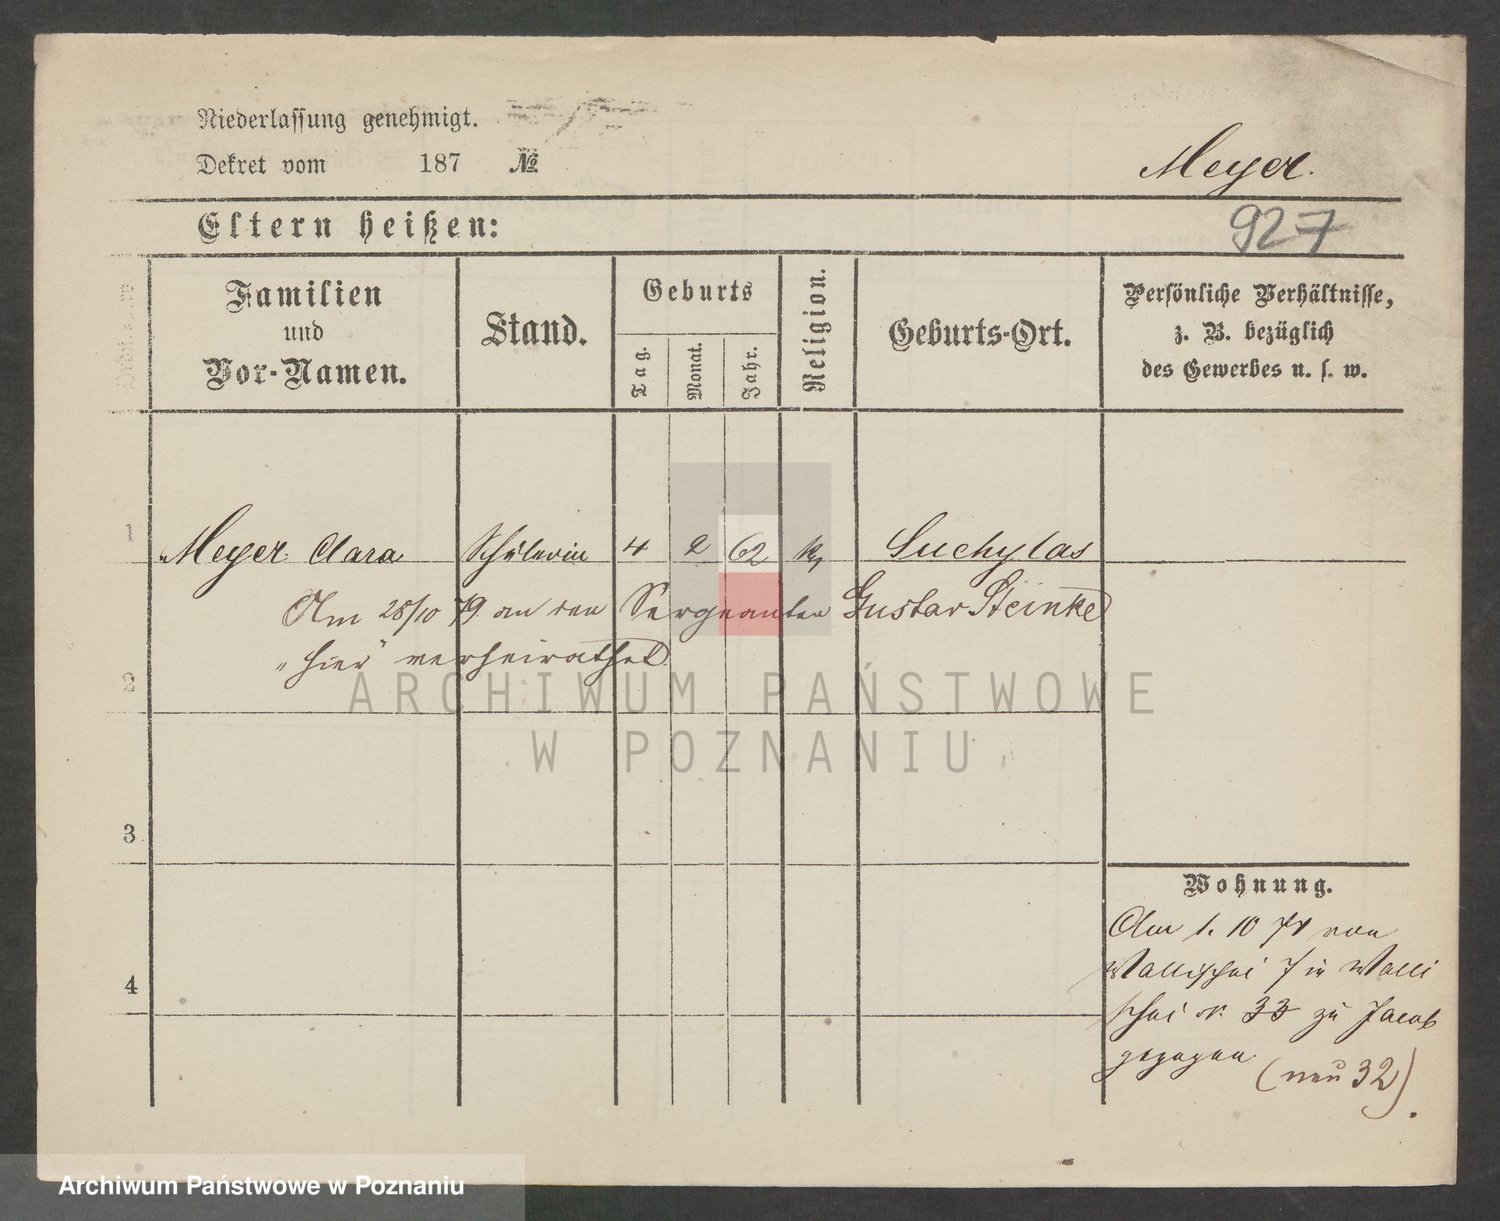 Niederlassung genehmigt.
Dekret vom 187 №
Meyer.
Eltern heißen:
927
Familien und Vor-Namen.
Stand.
Geburts
Tag.
Monat.
Jahr.
Religion.
Geburts-Ort.
Persönliche Verhältnisse,
z. B. bezüglich
des Gewerbes u. s. w.
1
Meyer Clara Schülerin 4 2 62 k, Suchylas
Am 28/10 79 an den Sergeanten Gustav Steinke
"hier" verheirathet.
2
3
4
Wohnung.
Am 1. 10 von
Wallischei 7 in Walli
schei N. 33 zu Jacob
gezogen.
(neu 32).
ARCHIWUM PAŃSTWOWE
W POZNANIU
Archiwum Państwowe w Poznaniu